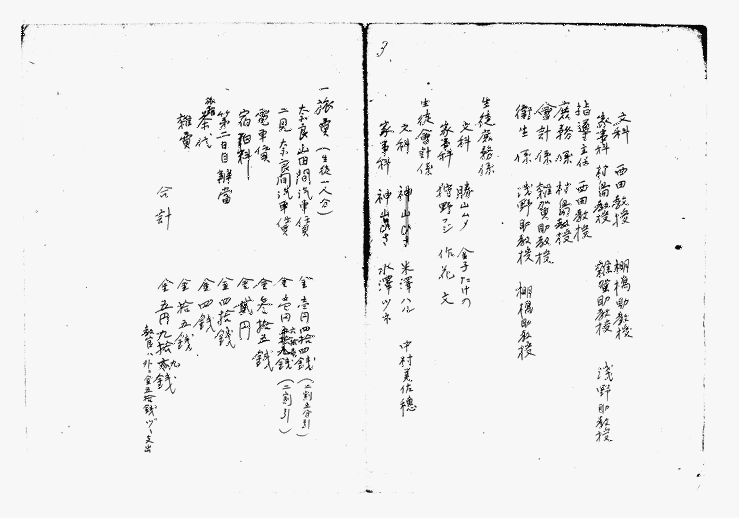 3
文科 西田教授 棚橋助教授
家事科 村島教授 雑賀助教授 浅野助教授
指導主任 西田教授
庶務係 村島教授
会計係 雑賀助教授
衛生係 浅野助教授 棚橋助教授
生徒庶務係
文科 勝山ムメ 金子たけの
家事科 狩野フジ 作花文
生徒会計係
文科 米澤ハル 中村美佐穂
家事科 神山ひさ 水澤ツネ
一旅費(生徒一人分)
奈良山田間汽車賃 金壱円四拾四銭(二割五分引)
二見奈良間汽車賃 金壱円銭(二割引)
電車賃 金参拾五銭
宿泊料 金貳円
第二日目辨当 金四拾銭
茶代 金四銭
雑費 金拾五銭
合計 金五円九拾九銭
教官ハ外ニ金五拾銭ヅヽ支出